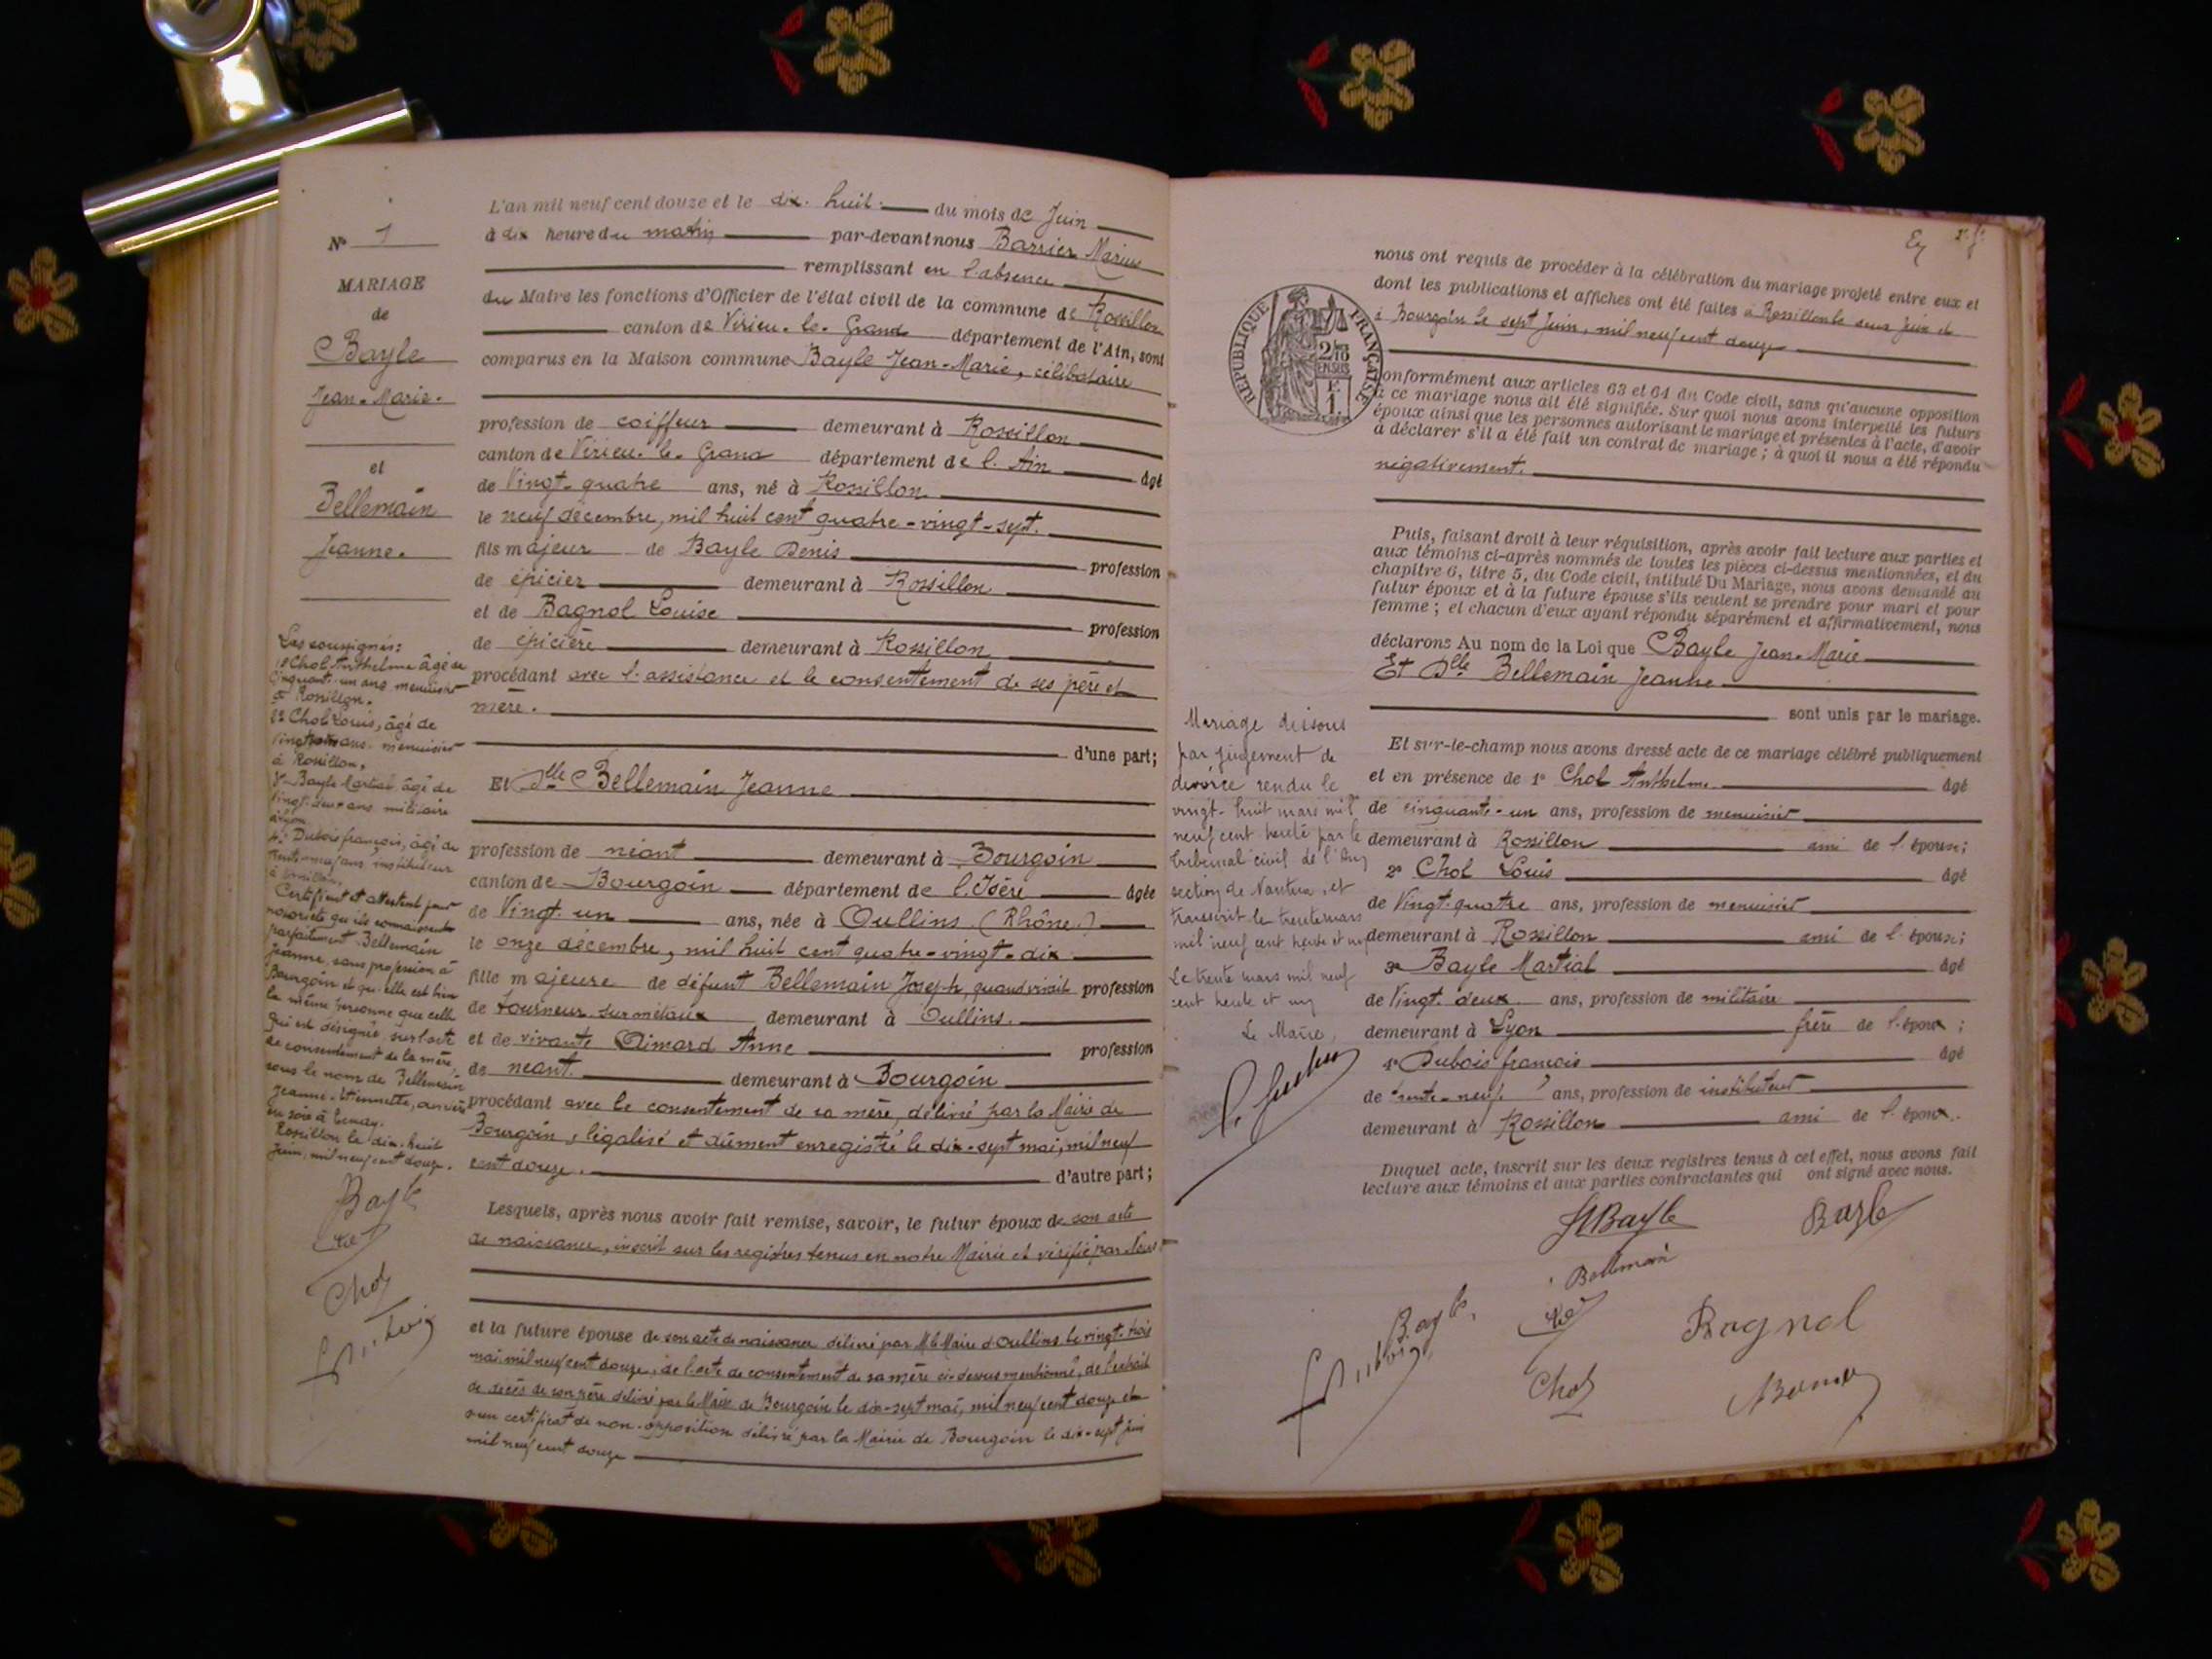 N° 1
MARIAGE
de
Bayle
Jean-Marie.
et
Bellemain
Jeanne.
Les soussignés:
1° Chol Anthelme âgé de
Cinquante-un ans menuisier
à Rossillon.
2° Chol Louis, âgé de
Vingt ans menuisier
à Rossillon,
3° Bayle Martial âgé de
Vingt-deux ans militaire
à Lyon
4° Dubois françois, âgé de
trente-neuf ans, instituteur
à Rossillon,
Certifient et attestent pour
notoriété qu'ils connaissent
parfaitement Bellemain
Jeanne, sans profession à
Bourgoin et qu'elle est bien
la même personne que celle
qui est désignée sur l'acte
de consentement de la mère,
sous le nom de Bellemain
Jeanne-Etiennette,
Rossillon le dix-huit
Juin, mil neuf cent douze.
Bayle
Chol
L'an mil neuf cent douze et le dix-huit du mois de Juin
à dix heure du matin par-devant nous Barrier Marius
remplissant en l'absence
du Maire les fonctions d'Officier de l'état civil de la commune de Rossillon
canton de Virieu-le-Grand département de l'Ain, sont
comparus en la Maison commune Bayle Jean-Marie, célibataire
profession de coiffeur demeurant à Rossillon
canton de Virieu-le-Grand département de l'Ain âgé
de Vingt-quatre ans, né à Rossillon
le neuf décembre, mil huit cent quatre-vingt-sept.
fils majeur de Bayle Denis profession
de épicier demeurant à Rossillon
et de Bagnol Louise profession
de épicière demeurant à Rossillon
procédant avec l'assistance et le consentement de ses père et
mère.
d'une part;
Et Dlle Bellemain Jeanne
profession de néant demeurant à Bourgoin
canton de Bourgoin département de l'Isère âgée
de Vingt-un ans, née à Oullins (Rhône)
le onze décembre, mil huit cent quatre-vingt-dix
fille majeure de défunt Bellemain Joseph, quand vivait profession
de tourneur sur métaux demeurant à Oullins.
et de vivante Aimard Anne profession
de néant. demeurant à Bourgoin
procédant avec le consentement de sa mère, délivré par la Mairie de
Bourgoin, légalisé et dûment enregistré le dix-sept mai, mil neuf
cent douze. d'autre part;
Lesquels, après nous avoir fait remise, savoir, le futur époux de son acte
de naissance, inscrit sur les registres tenus en notre Mairie et vérifié par Nous
et la future épouse de son acte de naissance délivré par M. le Maire d'Oullins le vingt-trois
mai, mil neuf cent douze, de l'acte de consentement de sa mère ci-dessus mentionné, de l'extrait
de décès de son père délivré par le Maire de Bourgoin le dix-sept mai, mil neuf cent douze et
d'un certificat de non-opposition délivré par la Mairie de Bourgoin le dix-sept juin
mil neuf cent douze
nous ont requis de procéder à la célébration du mariage projeté entre eux et
dont les publications et affiches ont été faites à Rossillon le deux Juin et
à Bourgoin le sept Juin, mil neuf cent douze
RÉPUBLIQUE FRANÇAISE
2/10
EN SUS
F.
1.
conformément aux articles 63 et 64 du Code civil, sans qu'aucune opposition
à ce mariage nous ait été signifiée. Sur quoi nous avons interpellé les futurs
époux ainsi que les personnes autorisant le mariage et présentes à l'acte, d'avoir
à déclarer s'il a été fait un contrat de mariage; à quoi il nous a été répondu
négativement.
Puis, faisant droit à leur réquisition, après avoir fait lecture aux parties et
aux témoins ci-après nommés de toutes les pièces ci-dessus mentionnées, et du
chapitre 6, titre 5, du Code civil, intitulé Du Mariage, nous avons demandé au
futur époux et à la future épouse s'ils veulent se prendre pour mari et pour
femme; et chacun d'eux ayant répondu séparément et affirmativement, nous
déclarons Au nom de la Loi que Bayle Jean-Marie
Et Dlle Bellemain Jeanne
sont unis par le mariage.
Et sur-le-champ nous avons dressé acte de ce mariage célébré publiquement
et en présence de 1° Chol Anthelme âgé
de cinquante-un ans, profession de menuisier
demeurant à Rossillon ami de l'époux;
2° Chol Louis âgé
de Vingt-quatre ans, profession de menuisier
demeurant à Rossillon ami de l'époux;
3° Bayle Martial âgé
de Vingt-deux ans, profession de militaire
demeurant à Lyon frère de l'époux;
4° Dubois françois âgé
de trente-neuf ans, profession de instituteur
demeurant à Rossillon ami de l'époux.
Duquel acte, inscrit sur les deux registres tenus à cet effet, nous avons fait
lecture aux témoins et aux parties contractantes qui ont signé avec nous.
Mariage dissous
par jugement de
divorce rendu le
vingt-huit mars mil
neuf cent trente par le
tribunal civil de l'Ain
section de Nantua, et
transcrit le trente mars
mil neuf cent trente et un
Le trente mars mil neuf
cent trente et un
Le Maire,
Bayle
Bayle
Bellemain
Bayle
Bagnol
Chol